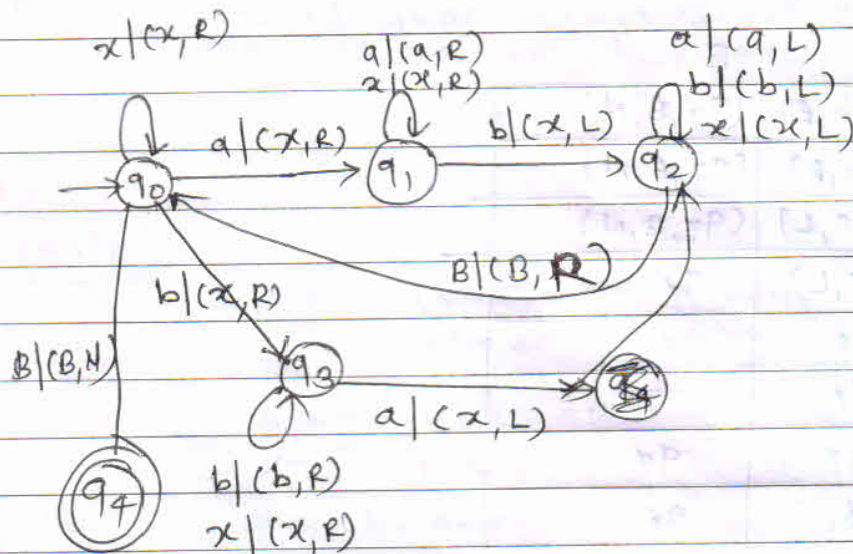 x|(x,R)
a|(a,R)
x|(x,R)
a|(a,L)
b|(b,L)
x|(x,L)
a|(x,R)
b|(x,L)
q0
q1
q2
B|(B,R)
b|(x,R)
B|(B,N)
q3
a|(x,L)
q4
b|(b,R)
x|(x,R)